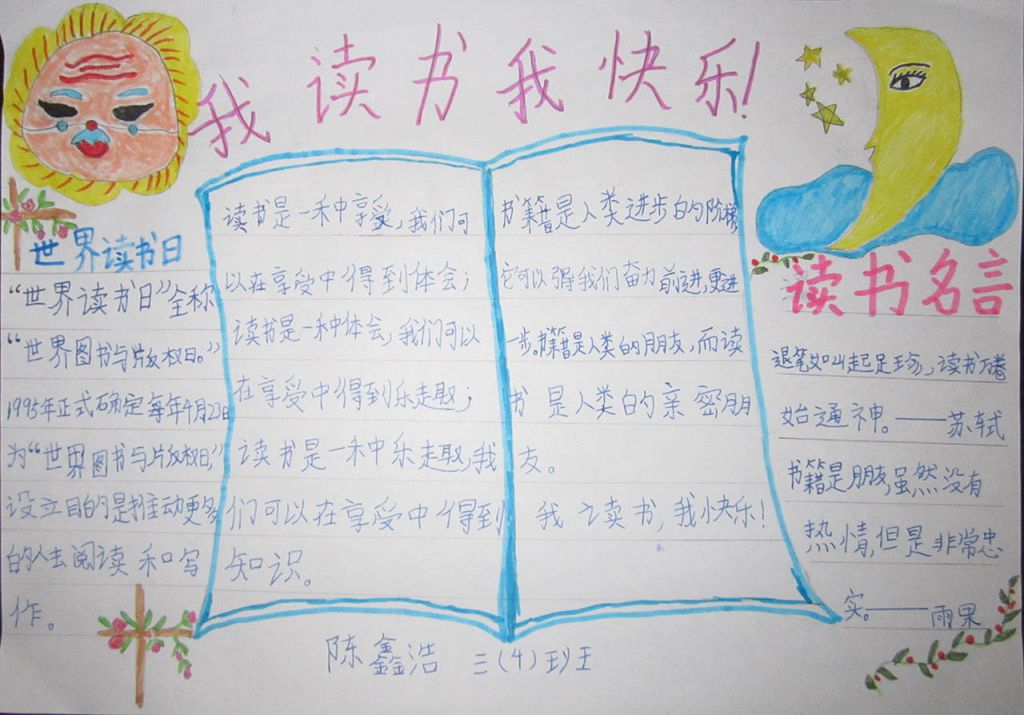 我读书我快乐！
世界读书日
“世界读书日”全称
“世界图书与版权日。”
1995年正式确定每年4月23日
为“世界图书与版权日，”
设立目的是推动更多
的人去阅读和写
作。
读书是一种享受，我们可
以在享受中得到体会；
读书是一种体会，我们可以
在享受中得到乐趣；
读书是一种乐趣，我
们可以在享受中得到
知识。
书籍是人类进步的阶梯
它可以强我们奋力前进，更进
一步。书籍是人类的朋友，而读
书是人类的亲密朋
友。
我读书，我快乐！
读书名言
退笔如山起足珍，读书万卷
始通神。——苏轼
书籍是朋友，虽然没有
热情，但是非常忠
实。——雨果
陈鑫浩 三（4）班